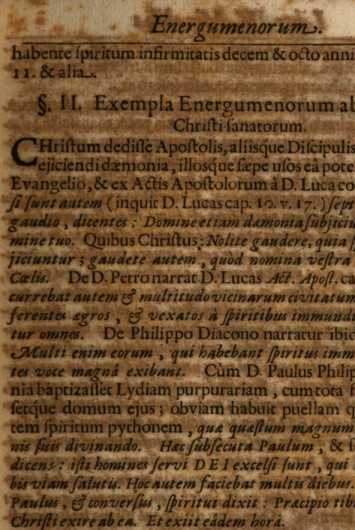 Energumenorum.
habente ſpiritum infirmitatis decem & octo anni
11. & alia.
§. II. Exempla Energumenorum ab
Chriſti ſanatorum.
CHriſtum dediſſe Apoſtolis, aliisque Diſcipulis
ejiciendi dæmonia, illosque ſæpe uſos eâ pote
Evangelio, & ex Actis Apoſtolorum à D. Luca co
ſi ſunt autem (inquit D. Lucas cap. 10. v. 17.) ſept
gaudio, dicentes: Domine etiam dæmonia ſubjiciu
mine tuo. Quibus Chriſtus; Nolite gaudere, quia ſ
jiciuntur; gaudete autem, quod nomina veſtra
Cœlis. De D. Petro narrat D. Lucas Act. Apoſt. ca
currebat autem & multitudo vicinarum civitatum
ferentes ægros, & vexatos à ſpiritibus immundi
tur omnes. De Philippo Diacono narratur ibid
Multi enim eorum, qui habebant ſpiritus imm
tes voce magnâ exibant. Cùm D. Paulus Philip
nia baptizaſſet Lydiam purpurariam, cum tota f
ſetque domum ejus; obviam habuit puellam q
tem ſpiritum pythonem, quæ quæſtum magnum
nis ſuis divinando. Hæc ſubſecuta Paulum, & ſ
dicens: iſti homines ſervi DEI excelſi ſunt, qui
bis viam ſalutis. Hoc autem faciebat multis diebus.
Paulus, & converſus, ſpiritui dixit: Præcipio tib
Chriſti exire ab ea. Et exiit eâdem hora.